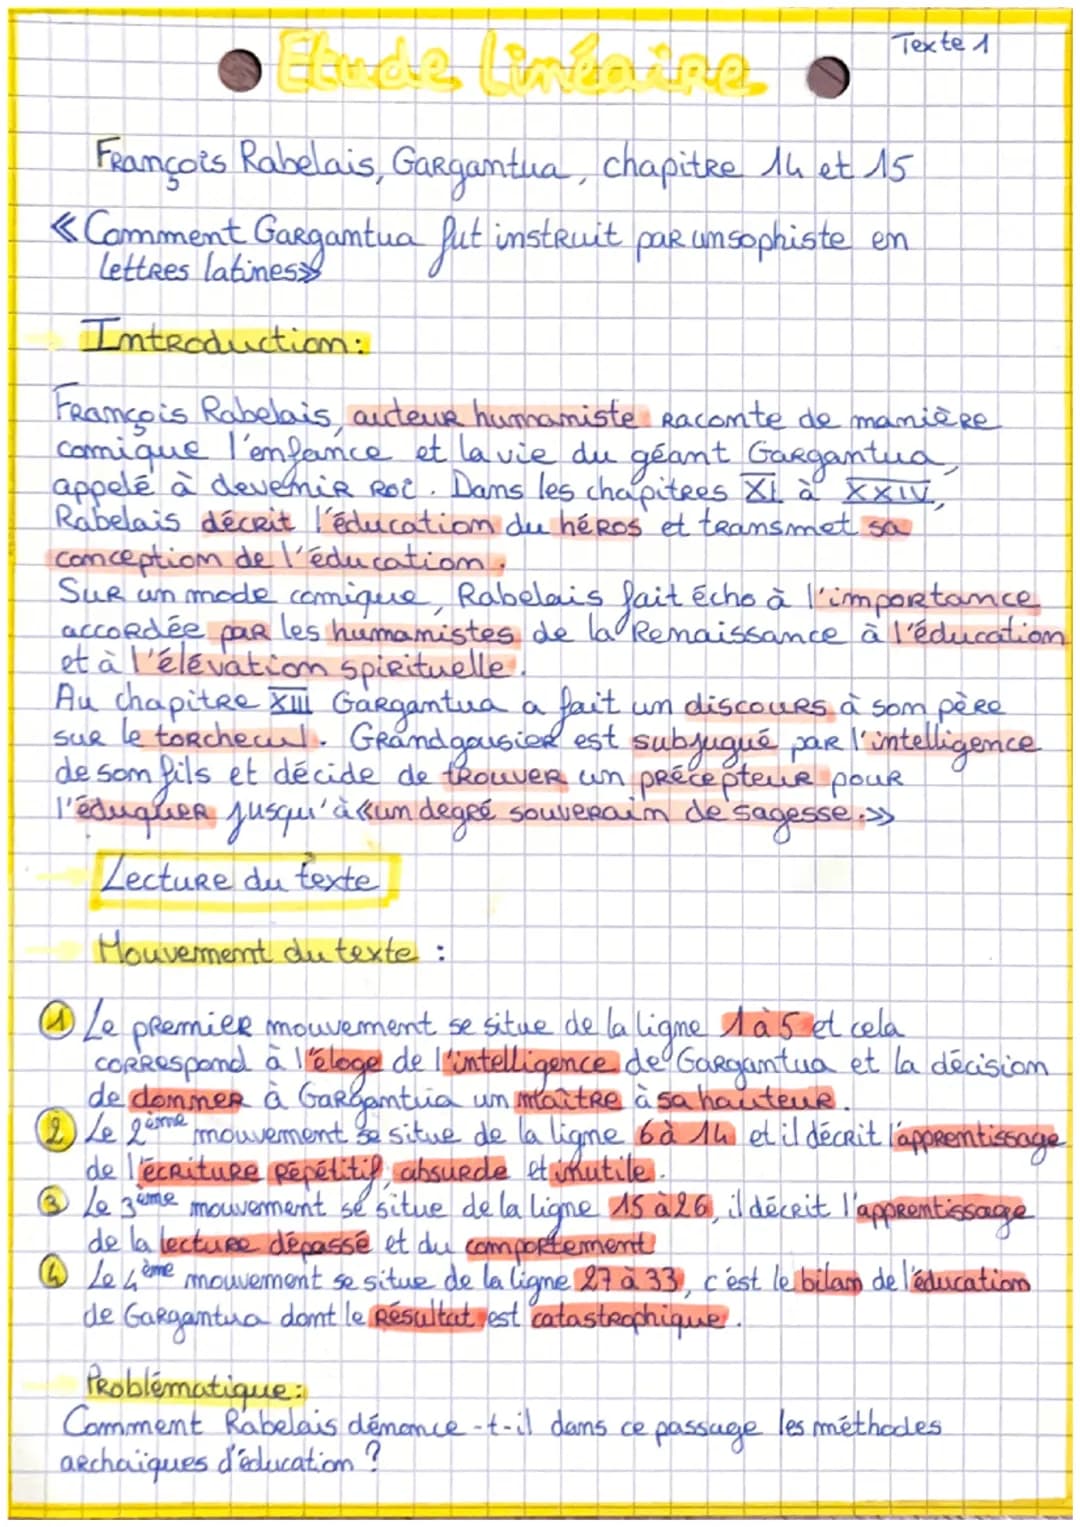 Texte 1
Etude Linéaire
François Rabelais, Gargantua, chapitre 14 et 15
«Comment Gargantua fut instruit par un sophiste en
lettres latines»
Introduction:
François Rabelais, auteur humaniste raconte de manière
comique l'enfance et la vie du géant Gargantua,
appelé à devenir roi. Dans les chapitres XI à XXIV,
Rabelais décrit l'éducation du héros et transmet sa
conception de l'éducation.
Sur un mode comique, Rabelais fait écho à l'importance
accordée par les humanistes de la Renaissance à l'éducation
et à l'élévation spirituelle.
Au chapitre XIII Gargantua a fait un discours à son père
sur le torchecul. Grandgousier est subjugué par l'intelligence
de son fils et décide de trouver un précepteur pour
l'éduquer jusqu'à «un degré souverain de sagesse.»
Lecture du texte
Mouvement du texte :
1 Le premier mouvement se situe de la ligne 1 à 5 et cela
correspond à l'éloge de l'intelligence de Gargantua et la décision
de donner à Gargantua un maître à sa hauteur.
2 Le 2ème mouvement se situe de la ligne 6 à 14 et il décrit l'apprentissage
de l'écriture répétitif, absurde et inutile.
3 Le 3ème mouvement se situe de la ligne 15 à 26, il décrit l'apprentissage
de la lecture dépassé et du comportement
4 Le 4ème mouvement se situe de la ligne 27 à 33, c'est le bilan de l'éducation
de Gargantua dont le résultat est catastrophique.
Problématique:
Comment Rabelais dénonce-t-il dans ce passage les méthodes
archaïques d'éducation ?